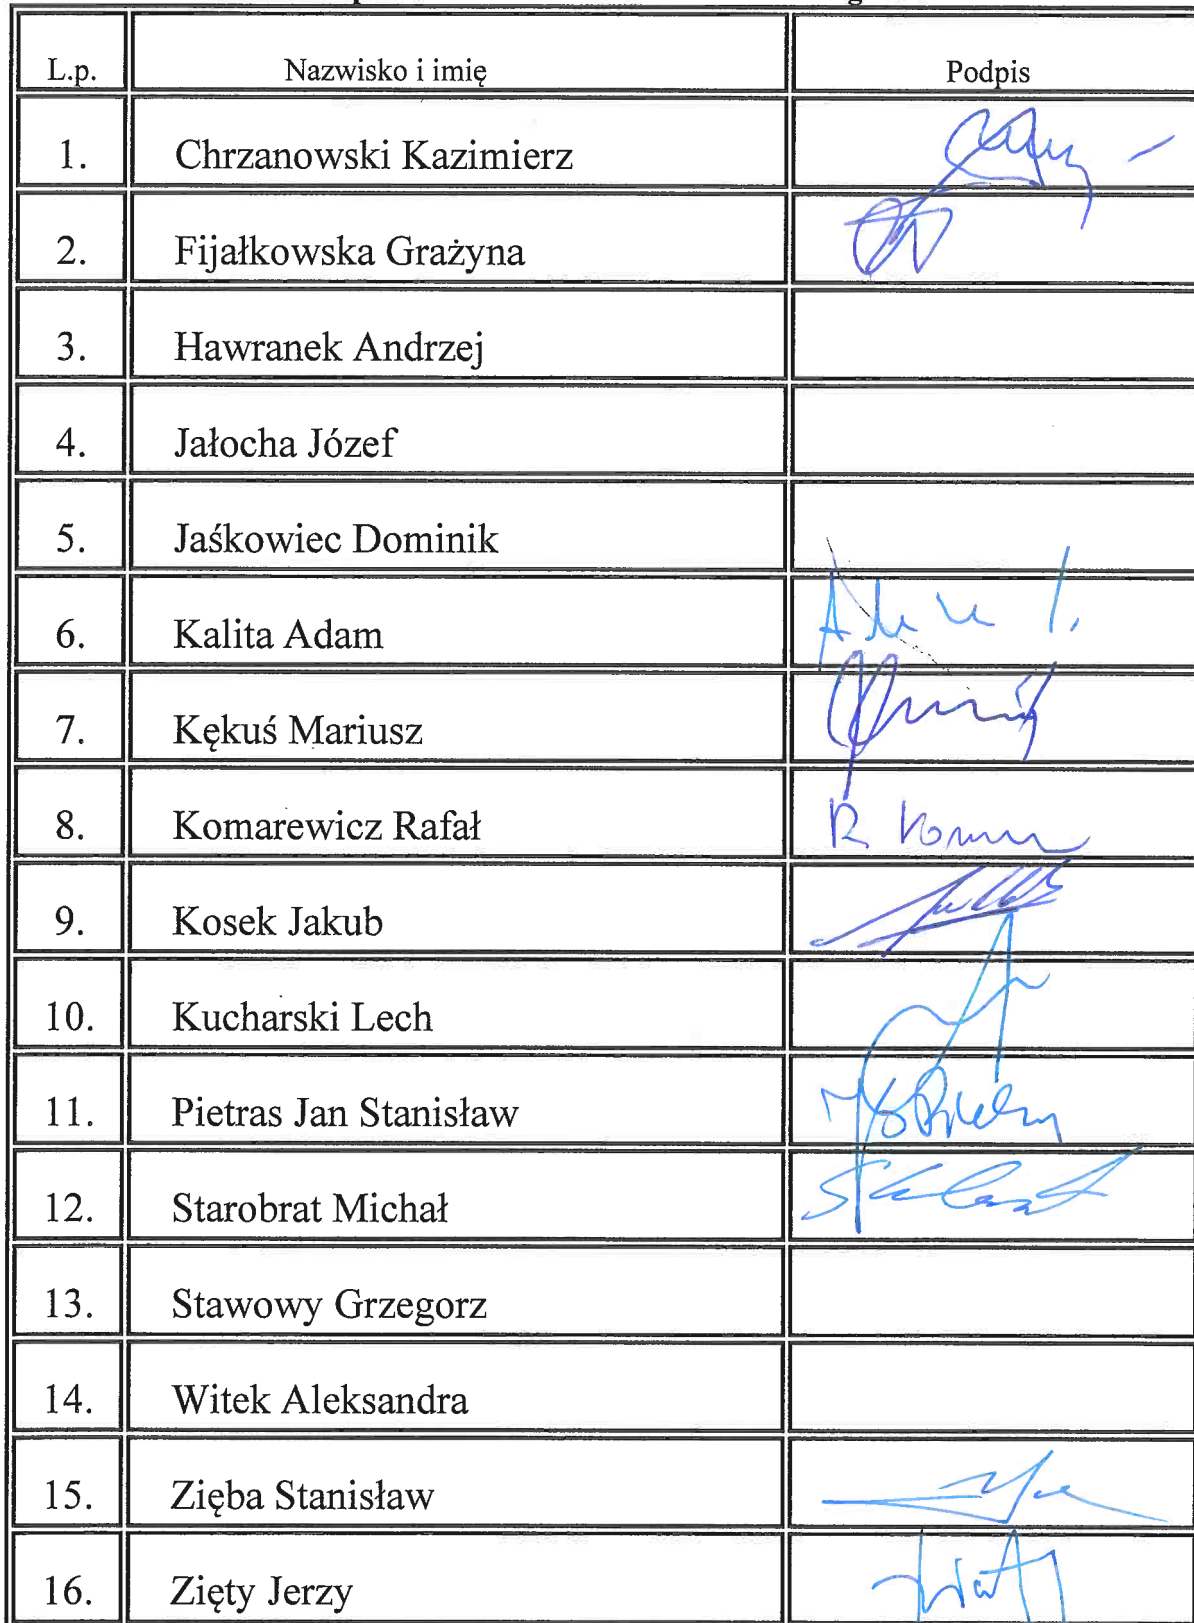 L.p. Nazwisko i imię Podpis
1. Chrzanowski Kazimierz
2. Fijałkowska Grażyna
3. Hawranek Andrzej
4. Jałocha Józef
5. Jaśkowiec Dominik
6. Kalita Adam
7. Kękuś Mariusz
8. Komarewicz Rafał
9. Kosek Jakub
10. Kucharski Lech
11. Pietras Jan Stanisław
12. Starobrat Michał
13. Stawowy Grzegorz
14. Witek Aleksandra
15. Zięba Stanisław
16. Zięty Jerzy